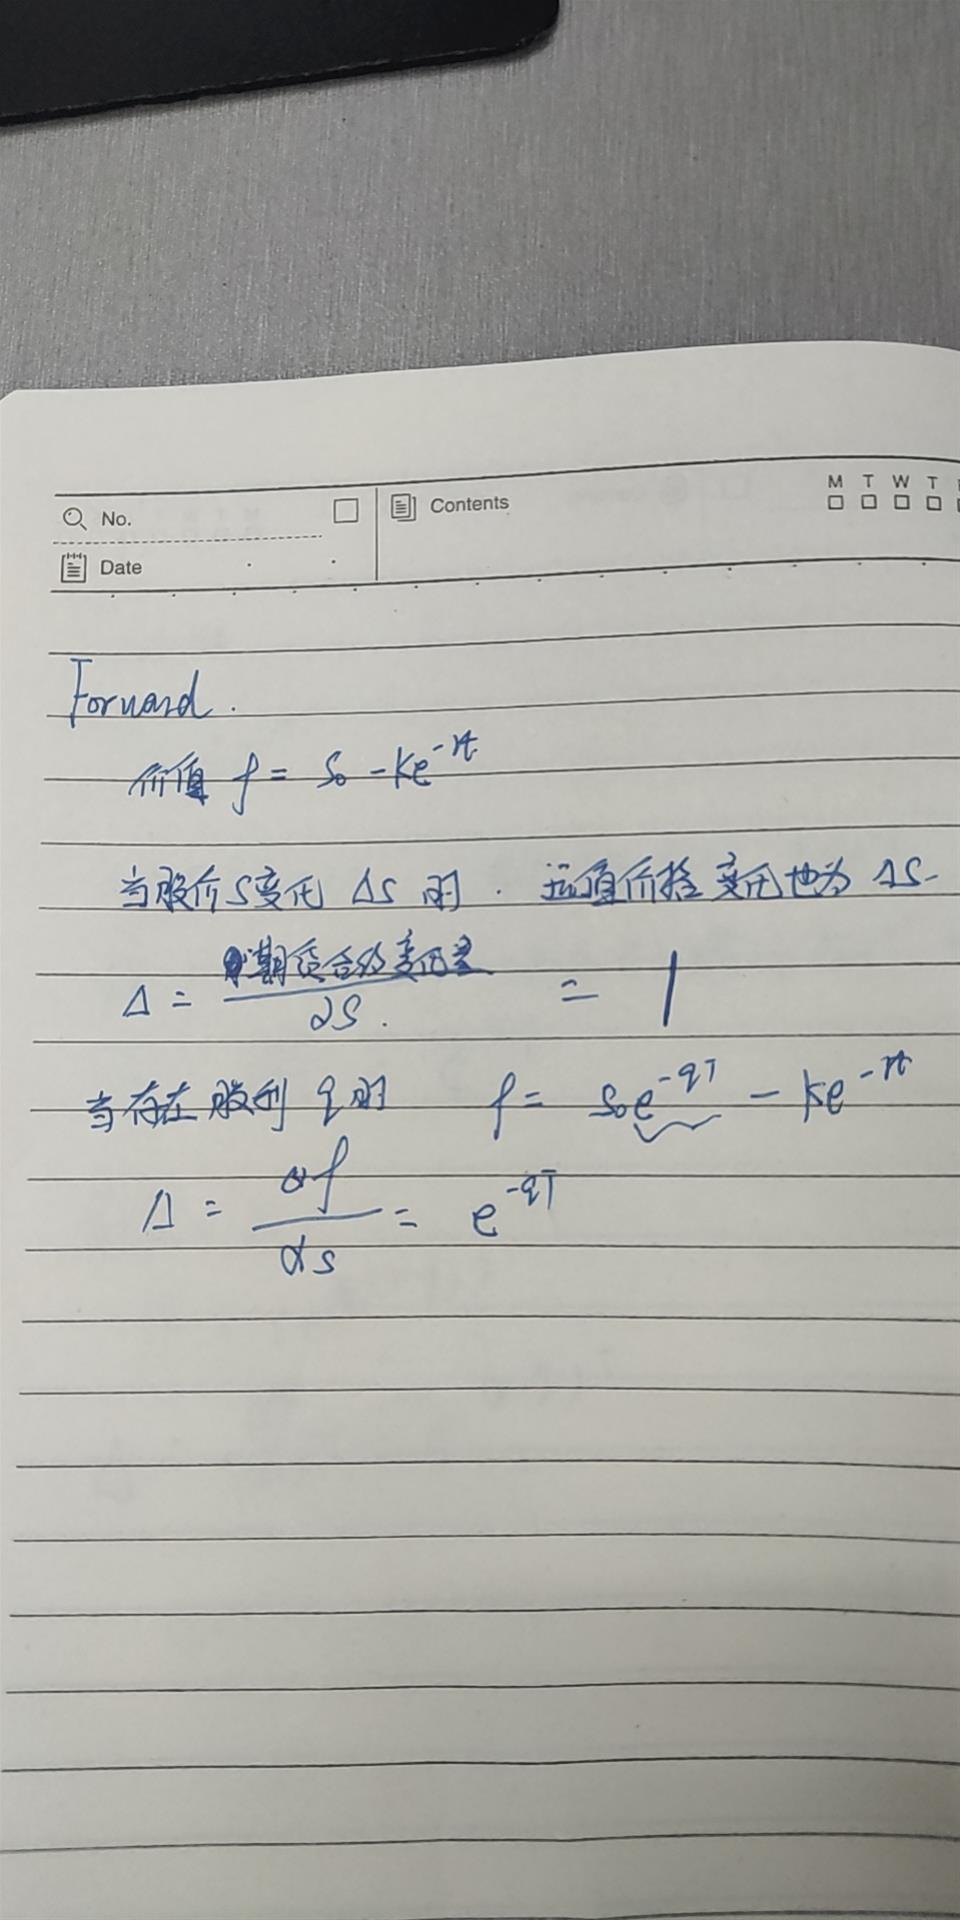 No.
Contents
M T W T
Date
Forward.
价值 f = S₀ - Ke^-rt
当股价S变化 ΔS 时. 远值价格变化也为 ΔS.
Δ = 期货合约变化 / ∂S. = 1
当存在股利 q 时 f = S₀e^-qT - Ke^-rt
Δ = ∂f / ∂s = e^-qT